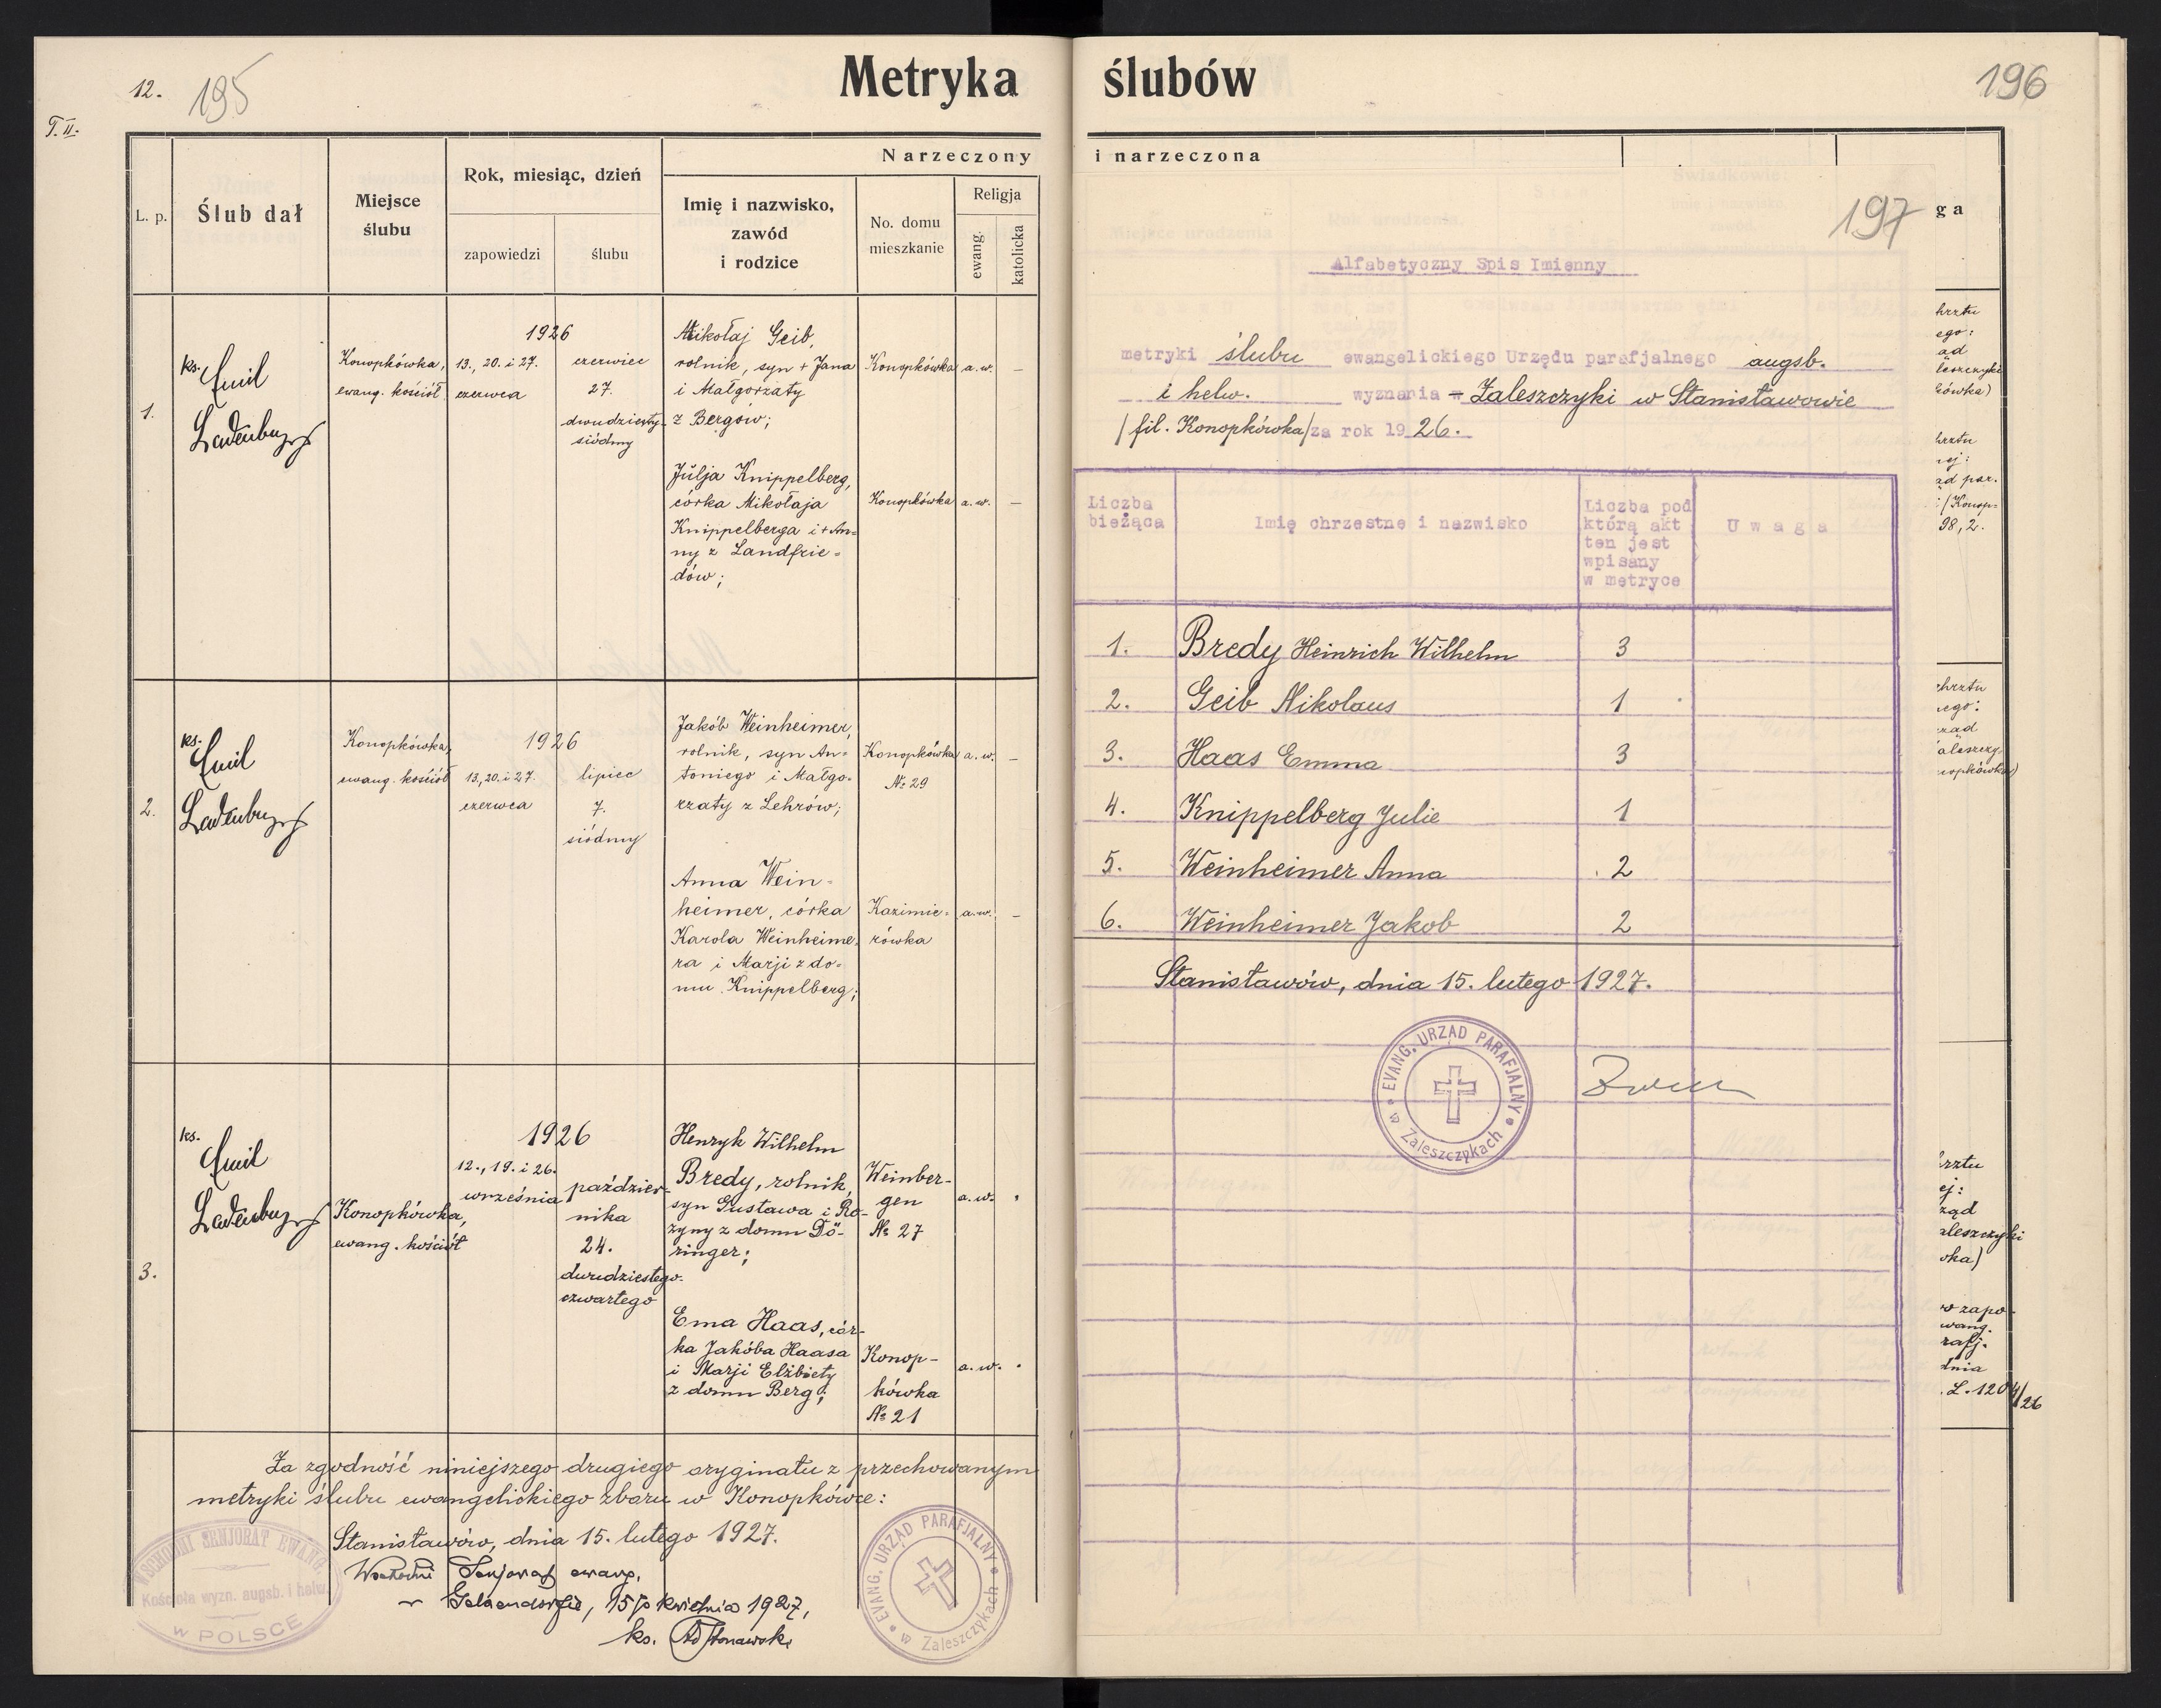 12.
195
T. II.
Metryka ślubów
196
L. p.
Ślub dał
Miejsce
ślubu
Rok, miesiąc, dzień
zapowiedzi
ślubu
Narzeczony i narzeczona
Imię i nazwisko,
zawód
i rodzice
No. domu
mieszkanie
Religja
ewang.
katolicka
1.
ks. Emil
Ladenberger
Konopkówka,
ewang. kościół
1926
13., 20. i 27.
czerwca
czerwiec
27.
dwudziesty
siódmy
Mikołaj Geib,
rolnik, syn + Jana
i Małgorzaty
z Bergów;
Konopkówka
a. w.
—
Julja Knippelberg,
córka Mikołaja
Knippelberga i + An-
ny z Landfrie-
dów;
Konopkówka
a. w.
—
2.
ks. Emil
Ladenberger
Konopkówka,
ewang. kościół
1926
13., 20. i 27.
czerwca
lipiec
7.
siódmy
Jakób Weinheimer,
rolnik, syn An-
toniego i Małgo-
rzaty z Lehrów;
Konopkówka
№ 29
a. w.
—
Anna Wein-
heimer, córka
Karola Weinheime-
ra i Marji z do-
mu Knippelberg;
Kazimie-
rówka
a. w.
—
3.
ks. Emil
Ladenberger
Konopkówka,
ewang. kościół
1926
12., 19. i 26.
września
paździer-
nika
24.
dwudziestego
czwartego
Henryk Wilhelm
Bredy, rolnik,
syn Gustawa i Ro-
zyny z domu Dö-
ringer;
Weinber-
gen
№ 27
a. w.
Ema Haas, cór-
ka Jakóba Haasa
i Marji Elżbiety
z domu Berg;
Konop-
kówka
№ 21
a. w.
Za zgodność niniejszego drugiego oryginału z przechowanym
metryki ślubu ewangelickiego zboru w Konopkówce:
Stanisławów, dnia 15. lutego 1927.
Wschodni Senjorat ewang.
15/ kwietnia 1927,
ks.
WSCHODNI SENJORAT EWANG.
Kościoła wyzn. augsb. i helw.
w POLSCE
EVANG. URZĄD PARAFJALNY
w Zaleszczykach
197
Alfabetyczny Spis Imienny
metryki ślubu ewangelickiego Urzędu parafjalnego augsb.
i helw. wyznania w Zaleszczyki w Stanisławowie
/fil. Konopkówka/ za rok 1926.
Liczba
bieżąca
Imię chrzestne i nazwisko
Liczba pod
którą akt
ten jest
wpisany
w metryce
Uwaga
1. Bredy Heinrich Wilhelm 3
2. Geib Nikolaus 1
3. Haas Emma 3
4. Knippelberg Julie 1
5. Weinheimer Anna 2
6. Weinheimer Jakob 2
Stanisławów, dnia 15. lutego 1927.
EVANG. URZĄD PARAFJALNY
w Zaleszczykach
ga
hrztu
ego:
ąd
leszczyki
kówka)
hrztu
ej:
ąd par.
(Konop-
98, 2.
chrztu
ego:
rząd
aleszczy-
nopkówka)
hrztu
ej:
ząd
aleszczyki
wka)
o zapo-
wang.
rafj.
dnia
L. 1204/26